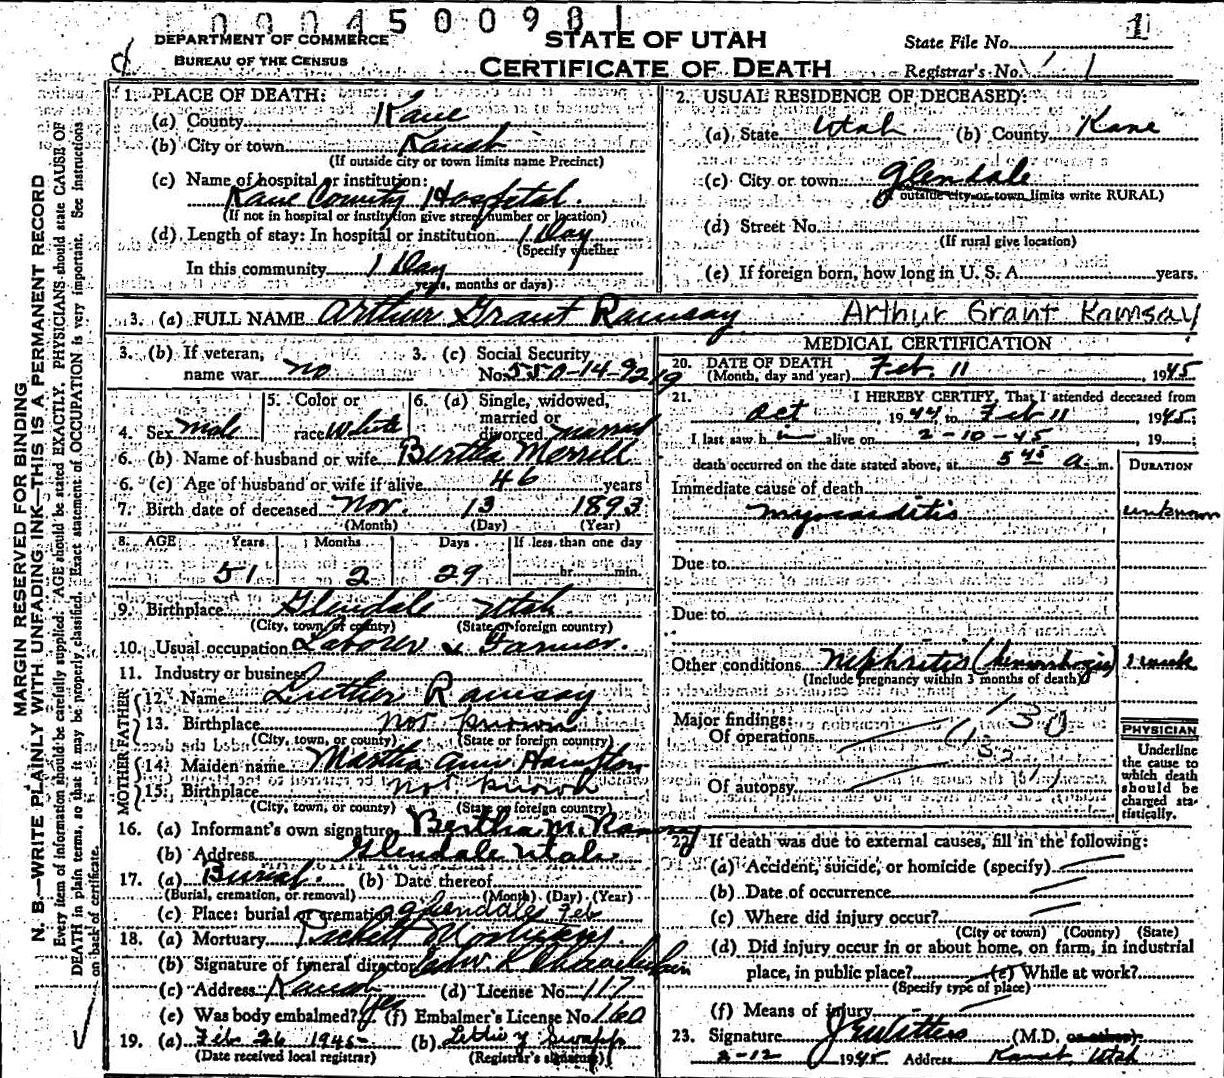 0 0 0 4 5 0 0 9 8 1
DEPARTMENT OF COMMERCE
BUREAU OF THE CENSUS
STATE OF UTAH
CERTIFICATE OF DEATH
State File No. 1
Registrar's No. 1
MARGIN RESERVED FOR BINDING
N. B.—WRITE PLAINLY WITH UNFADING INK—THIS IS A PERMANENT RECORD
Every item of information should be carefully supplied. AGE should be stated EXACTLY. PHYSICIANS should state CAUSE OF
DEATH in plain terms, so that it may be properly classified. Exact statement of OCCUPATION is very important. See instructions
on back of certificate.
1. PLACE OF DEATH:
(a) County Kane
(b) City or town Kanab
(If outside city or town limits name Precinct)
(c) Name of hospital or institution:
Kane County Hospital.
(If not in hospital or institution give street number or location)
(d) Length of stay: In hospital or institution 1 Day
(Specify whether
In this community 1 Day
years, months or days)
2. USUAL RESIDENCE OF DECEASED:
(a) State Utah (b) County Kane
(c) City or town Glendale
outside city or town limits write RURAL)
(d) Street No.
(If rural give location)
(e) If foreign born, how long in U. S. A. years.
3. (a) FULL NAME Arthur Grant Ramsay Arthur Grant Ramsay
3. (b) If veteran, name war no
3. (c) Social Security No. 550-14-9219
4. Sex male
5. Color or race White
6. (a) Single, widowed, married or divorced married
6. (b) Name of husband or wife Bertha Merrill
6. (c) Age of husband or wife if alive 46 years
7. Birth date of deceased Nov. 13 1893
(Month) (Day) (Year)
8. AGE Years Months Days If less than one day
51 2 29 hr. min.
9. Birthplace Glendale Utah
(City, town, or county) (State or foreign country)
10. Usual occupation Laborer & Farmer.
11. Industry or business
FATHER
12. Name Luther Ramsay
13. Birthplace not known
(City, town, or county) (State or foreign country)
MOTHER
14. Maiden name Martha Ann Hampton
15. Birthplace not known
(City, town, or county) (State or foreign country)
16. (a) Informant's own signature Bertha M. Ramsay
(b) Address Glendale Utah
17. (a) Burial. (b) Date thereof
(Burial, cremation, or removal) (Month) (Day) (Year)
(c) Place: burial or cremation Glendale Feb
18. (a) Mortuary
(b) Signature of funeral director
(c) Address Kanab (d) License No. 117
(e) Was body embalmed? Yes (f) Embalmer's License No. 160
19. (a) Feb 26 1945 (b) Lettie Y Swapp
(Date received local registrar) (Registrar's signature)
MEDICAL CERTIFICATION
20. DATE OF DEATH
(Month, day and year) Feb. 11, 1945
21. I HEREBY CERTIFY, That I attended deceased from
Oct, 1944 to Feb 11, 1945;
I last saw him alive on 2-10-45, 19
death occurred on the date stated above, at 5 45 a. m.
DURATION
Immediate cause of death
myocarditis unknown
Due to
Due to
Other conditions Nephritis (hemorrhagic) 1 week
(Include pregnancy within 3 months of death)
Major findings:
Of operations
Of autopsy
PHYSICIAN
Underline
the cause to
which death
should be
charged sta-
tistically.
22. If death was due to external causes, fill in the following:
(a) Accident, suicide, or homicide (specify)
(b) Date of occurrence
(c) Where did injury occur?
(City or town) (County) (State)
(d) Did injury occur in or about home, on farm, in industrial
place, in public place? (e) While at work?
(Specify type of place)
(f) Means of injury
23. Signature (M.D. or other).
2-12 1945 Address Kanab, Utah